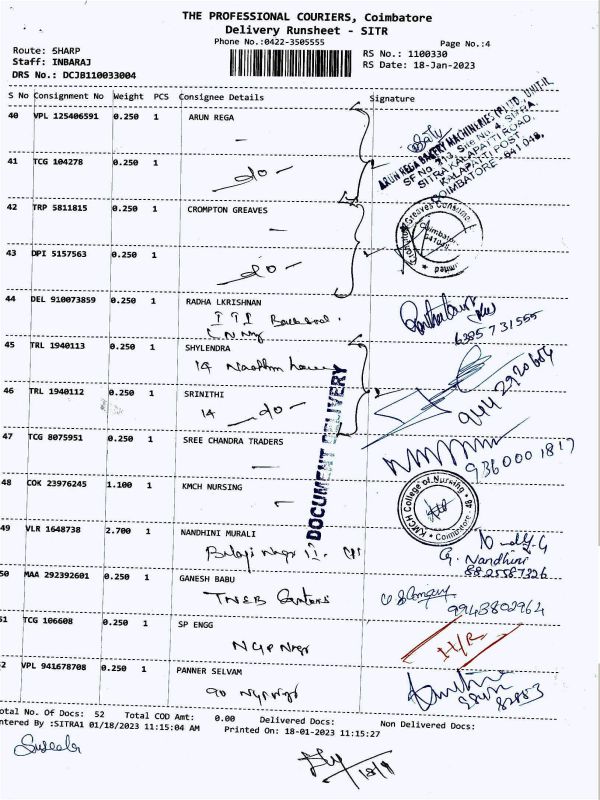 THE PROFESSIONAL COURIERS, Coimbatore
Delivery Runsheet - SITR
Phone No.:0422-3505555
Page No.:4
Route: SHARP
Staff: INBARAJ
DRS No.: DCJB110033004
RS No.: 1100330
RS Date: 18-Jan-2023
S No Consignment No Weight PCS Consignee Details Signature
40 VPL 125406591 0.250 1 ARUN REGA
ARUN REGA BAKERY MACHINERIES (P) LTD., UNIT-II,
SF No. 713, Site No. 4, SITRA,
SITRA KALAPATTI ROAD,
KALAPATTI POST,
COIMBATORE - 641 048.
41 TCG 104278 0.250 1
do
42 TRP 5811815 0.250 1 CROMPTON GREAVES
Crompton Greaves Consume
Coimbator
Limited
43 DPI 5157563 0.250 1
do
44 DEL 910073859 0.250 1 RADHA LKRISHNAN
6385731555
45 TRL 1940113 0.250 1 SHYLENDRA
14
46 TRL 1940112 0.250 1 SRINITHI
14 do
944 2920
DOCUMENT DELIVERY
47 TCG 8075951 0.250 1 SREE CHANDRA TRADERS
936000 1817
48 COK 23976245 1.100 1 KMCH NURSING
KMCH College of Nursing
Coimbatore - 48
49 VLR 1648738 2.700 1 NANDHINI MURALI
G. Nandhini
8825587326
50 MAA 292392601 0.250 1 GANESH BABU
TNEB
9943802964
51 TCG 106608 0.250 1 SP ENGG
NGP Nagar
52 VPL 941678708 0.250 1 PANNER SELVAM
90
otal No. Of Docs: 52 Total COD Amt: 0.00 Delivered Docs: Non Delivered Docs:
ntered By :SITRA1 01/18/2023 11:15:04 AM Printed On: 18-01-2023 11:15:27
18/1